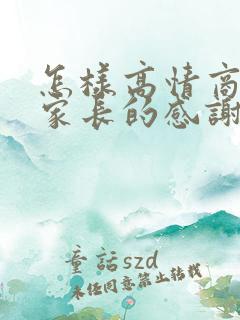 怎樣高情商
家長的感謝
童話szd
未任同意禁止轉載